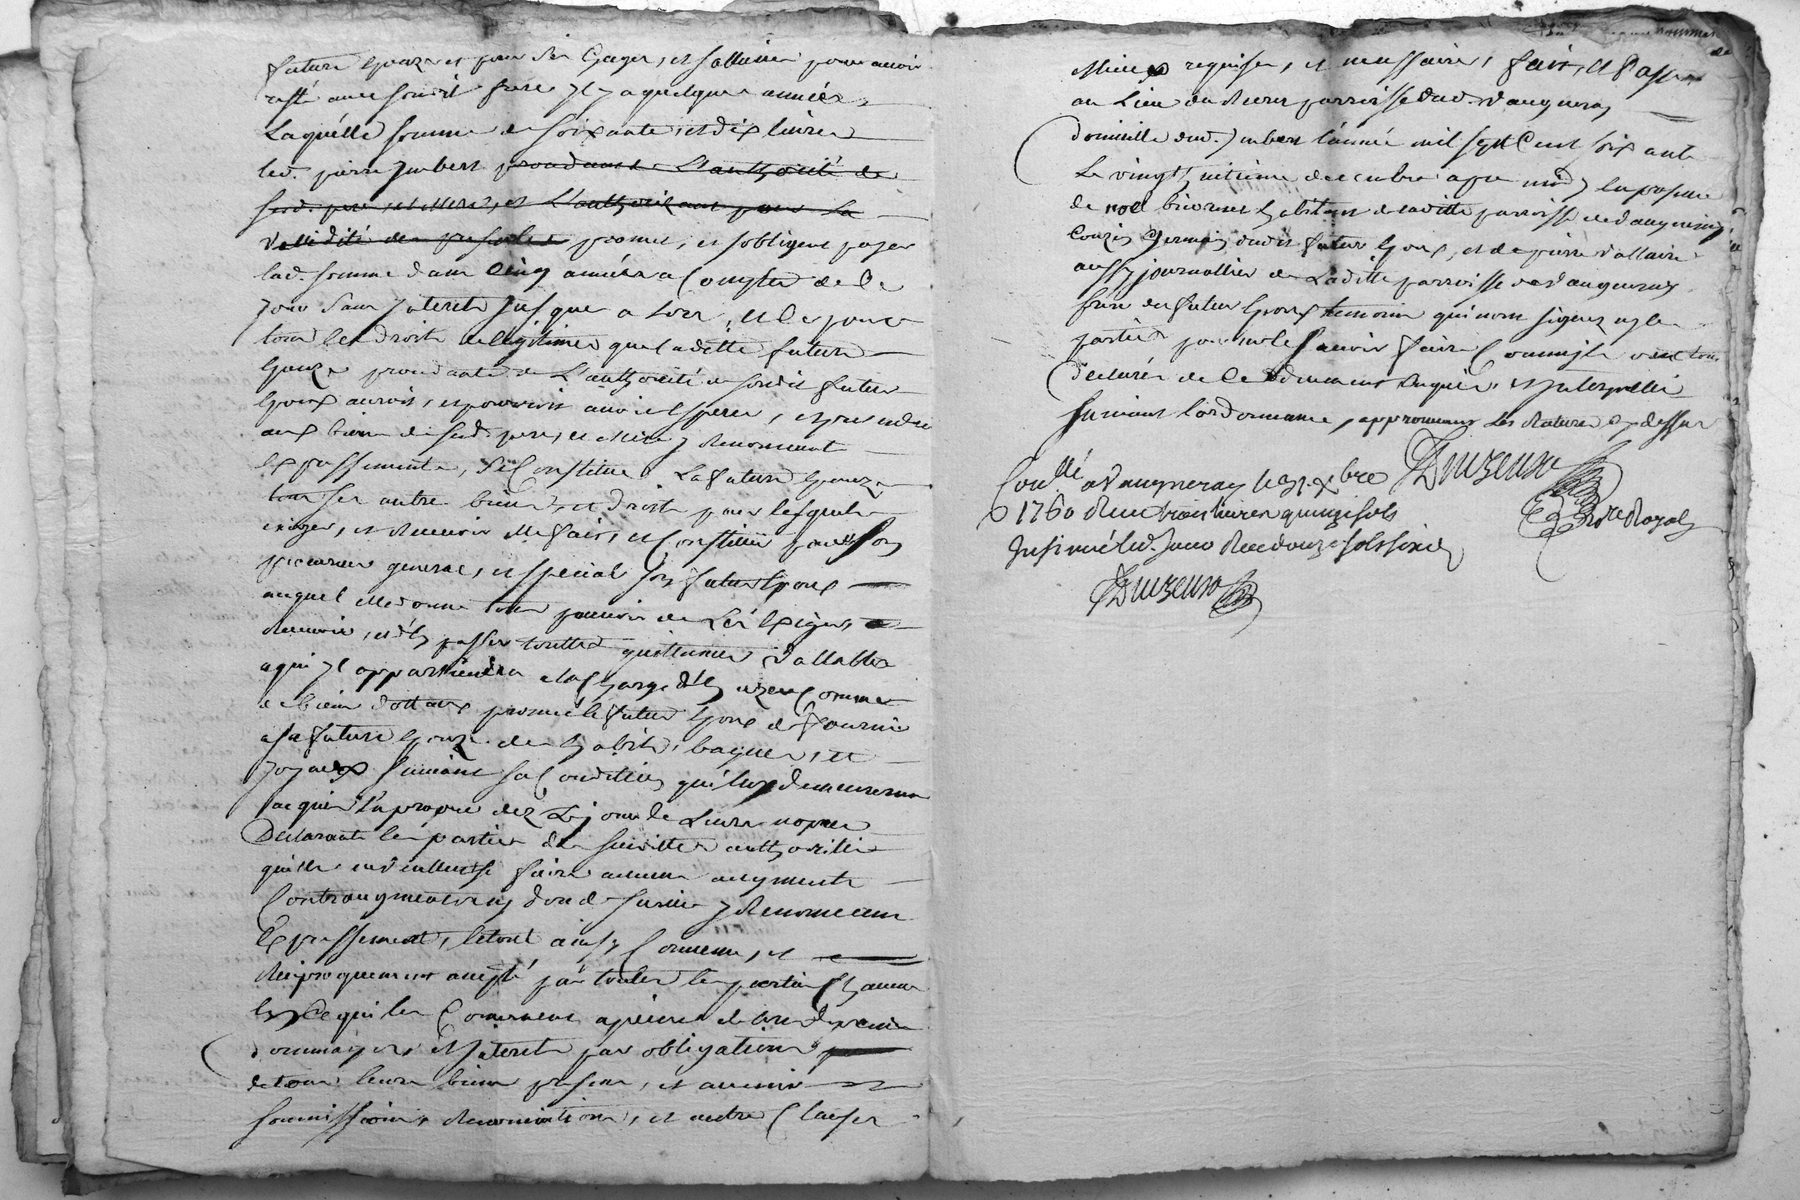 future epouze et pour ses Gages, et sallaires pour avoir
resté avec sondit frere il y a quelques années,
Laquelle somme de soixante et dix livres
led. pierre Imbert procedant de L'authorité de
sesd. pere, et mere, et L'authorizant pour La
vallidité des presentes promet, et s'obligent payer
lad. somme dans cinq années a Compter de Ce
Jour sans Interets jusques a Lors, et Ce pour
tous les droits de legitimes que Laditte future
Epouze procedante de L'authorité de sondit futur
Epoux auroit, et pourroit avoir et esperer, et pretendre
aux biens de sesd. pere, et mere y Renonçant
Expressement, se Constitue La future Epouze
tous ses autres biens, et droits pour lesquels
exiger, et Recevoir elle fait, et Constitue pour son
procureur general, et special son futur Epoux
auquel elle donne tous pouvoir de Les Exiger,
Recevoir, et d'en passer touttes quittances vallables
a qui Il appartiendra a la Charge d'en uzer Comme
de biens dottaux promet le futur Epoux de fournir
a sa future Epouze des habits, bagues, et
Joyaux suivant sa Condition qui luy demeureront
acquis En propre dez Le jour de Leurs nopces
Declarants les parties de Suitte authorité
qu'elles ne veullent se faire aucune augments
Contraugments ny don de survie y Renonceant
Expressement, le tout ainsy Convenu, et
Reciproquement accepté par toutes les parties Chacune
En Ce qui les Concernent a peine de tous depens
dommages, et Interets par obligations
de tous leurs biens presens, et avenir
soumissions, Renonciations, et autres Clauses
Mieux requises, et necessaires, fait, et Passé
au Lieu du Recret parroisse dud. vaugneray
domicille dud. Imbert l'année mil sept Cent soix ante
Le vingt huitieme decembre apres midy En presence
de noel habitant de laditte parroisse de vaugneray
Couzin Germain dudit futur Epoux, et de pierre vallaire
aussy journallier de Laditte parroisse de vaugneray
frere du futur Epoux temoins qui n'ont signez ny les
parties pour ne le sçavoir faire Comme ils ont tous
declarés de Ce Duement Enquis, et Interpellés
suivant l'ordonnance, approuvant Les Ratures cy dessus
Conllé a Vaugneray le 31 xbre
1760 Reçu trois livres quinze sols
Insinué led. Jour Reçu douze sols six d
Nore Royal